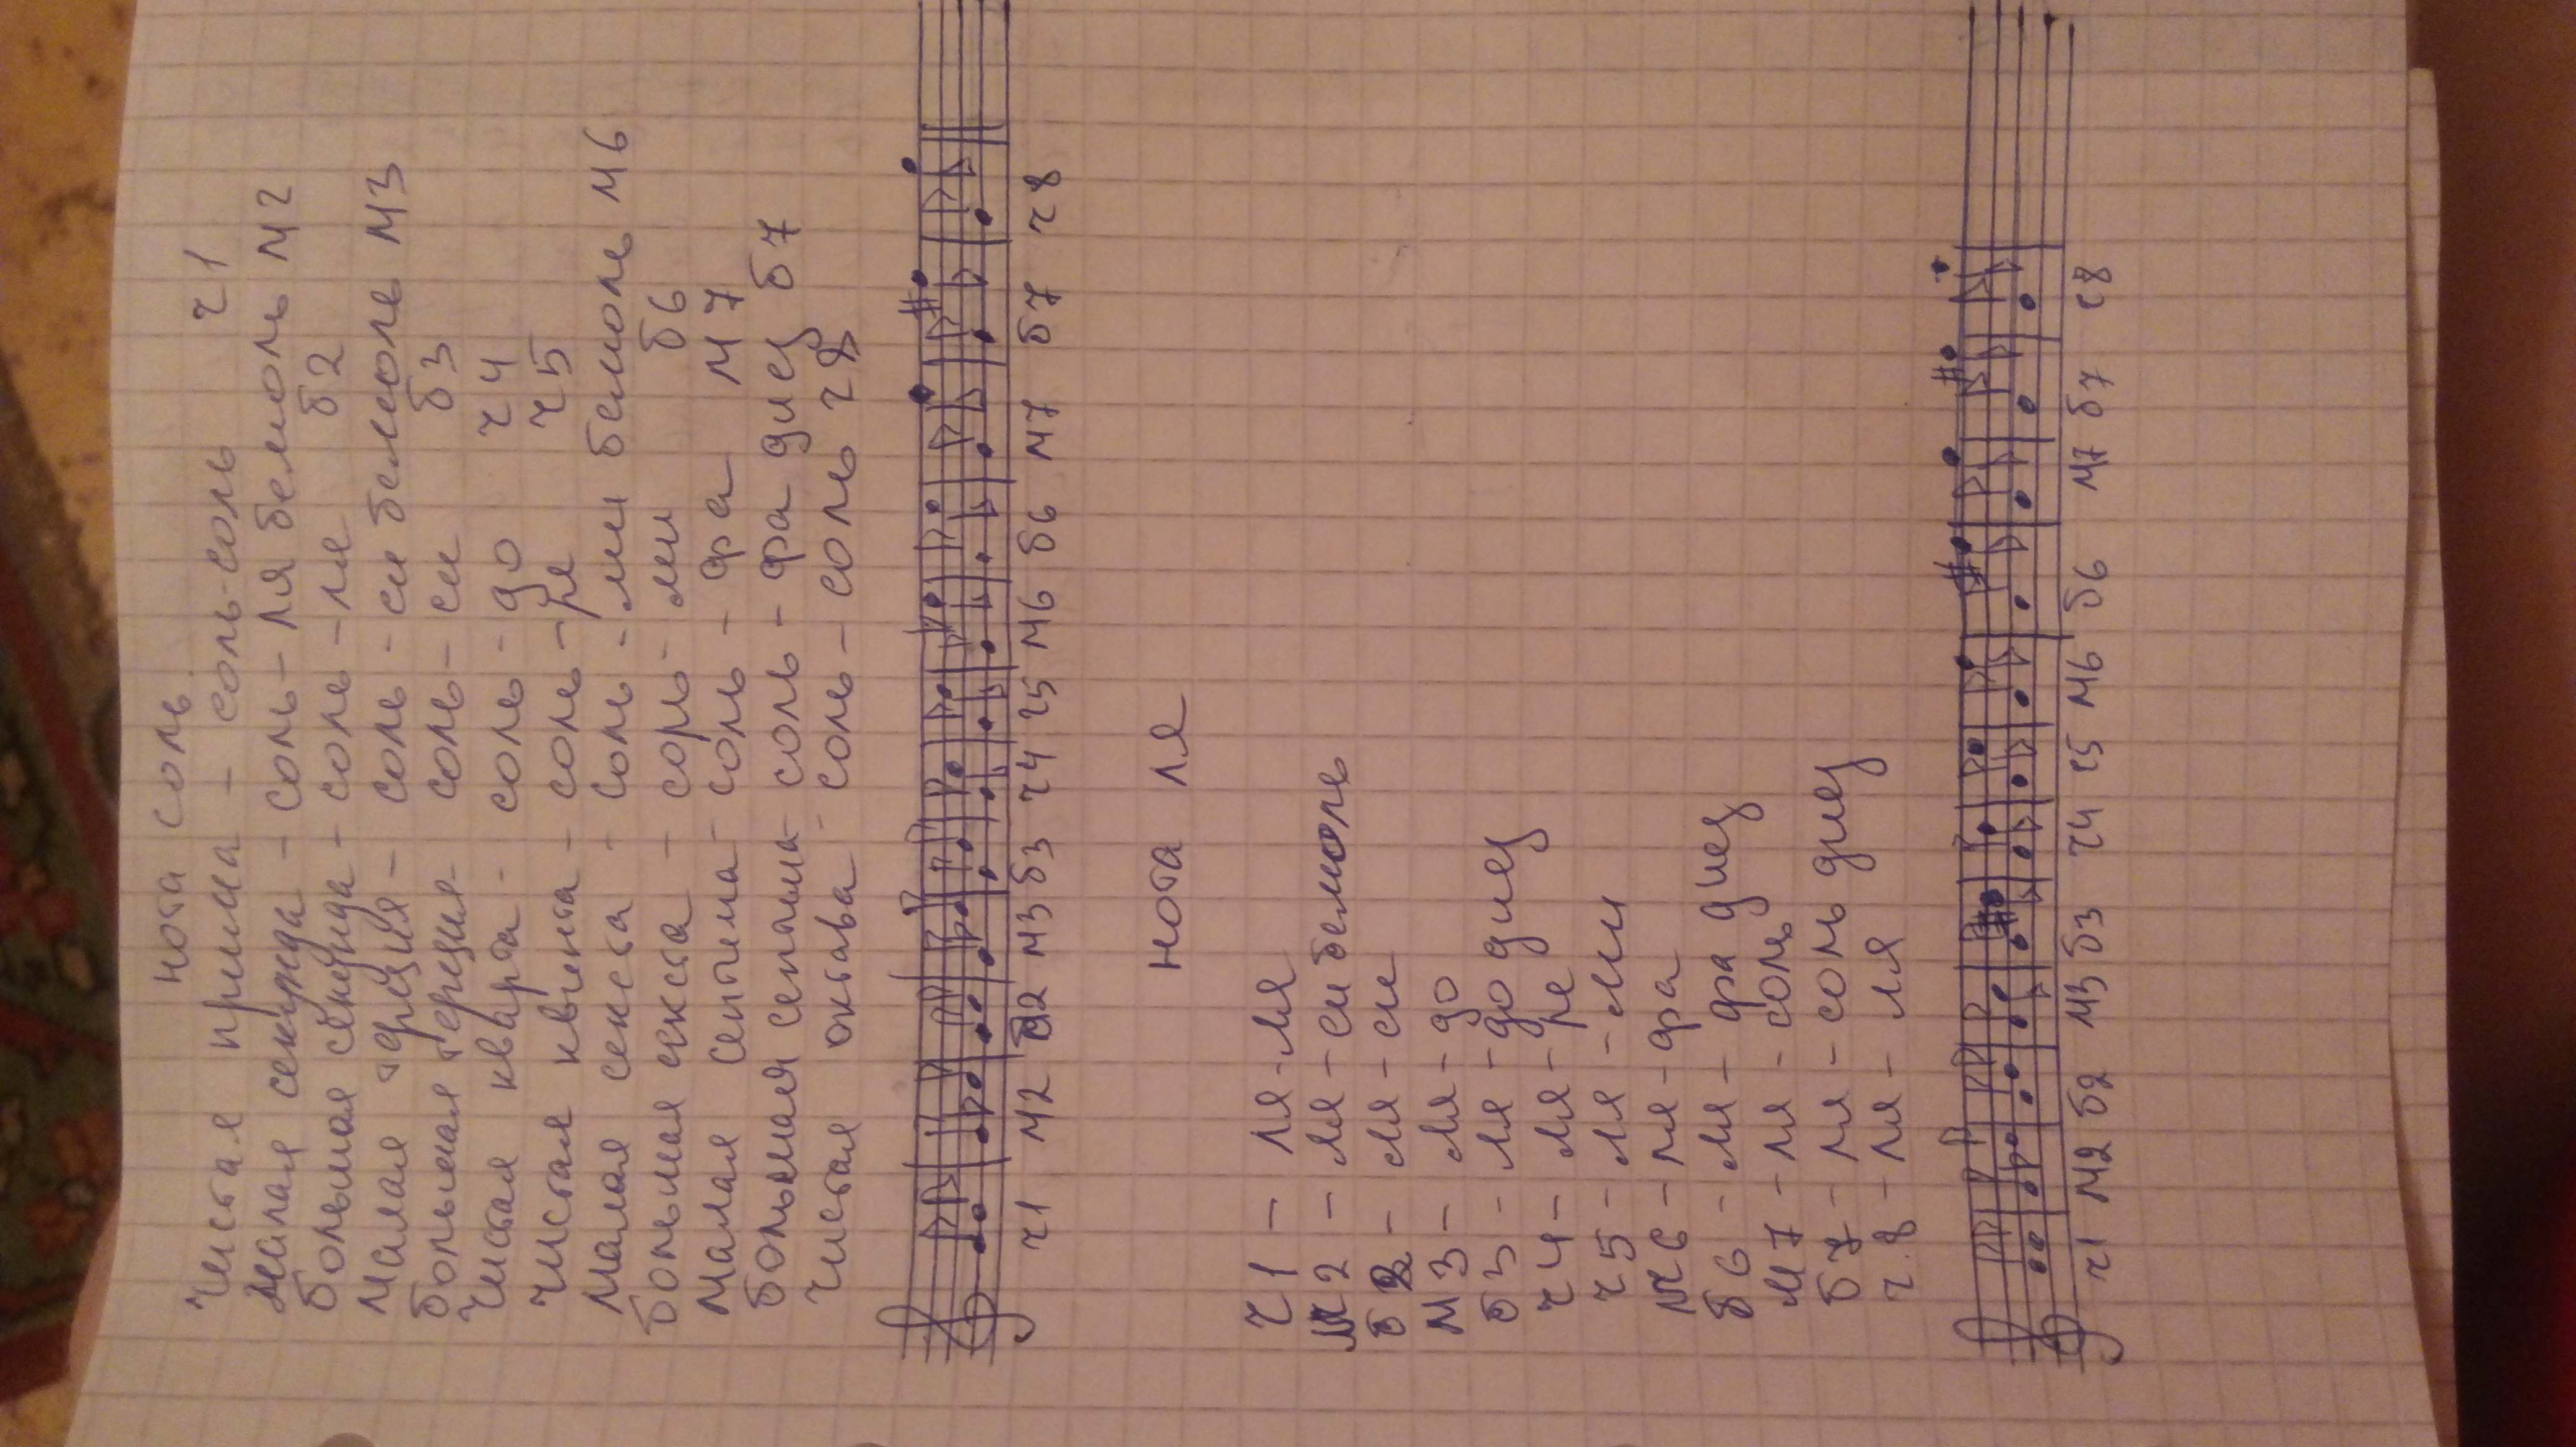 нота соль
чистая прима - соль-соль ч1
малая секунда - соль - ля бемоль м2
большая секунда - соль - ля б2
малая терция - соль - си бемоль м3
большая терция - соль - си б3
чистая кварта - соль - до ч4
чистая квинта - соль - ре ч5
малая секста - соль - ми бемоль м6
большая секста - соль - ми б6
малая септима - соль - фа м7
большая септима - соль - фа диез б7
чистая октава - соль - соль ч8
ч1 м2 б2 м3 б3 ч4 ч5 м6 б6 м7 б7 ч8
нота ля
ч1 - ля - ля
м2 - ля - си бемоль
б2 - ля - си
м3 - ля - до
б3 - ля - до диез
ч4 - ля - ре
ч5 - ля - ми
м6 - ля - фа
б6 - ля - фа диез
м7 - ля - соль
б7 - ля - соль диез
ч.8 - ля - ля
ч1 м2 б2 м3 б3 ч4 ч5 м6 б6 м7 б7 ч8